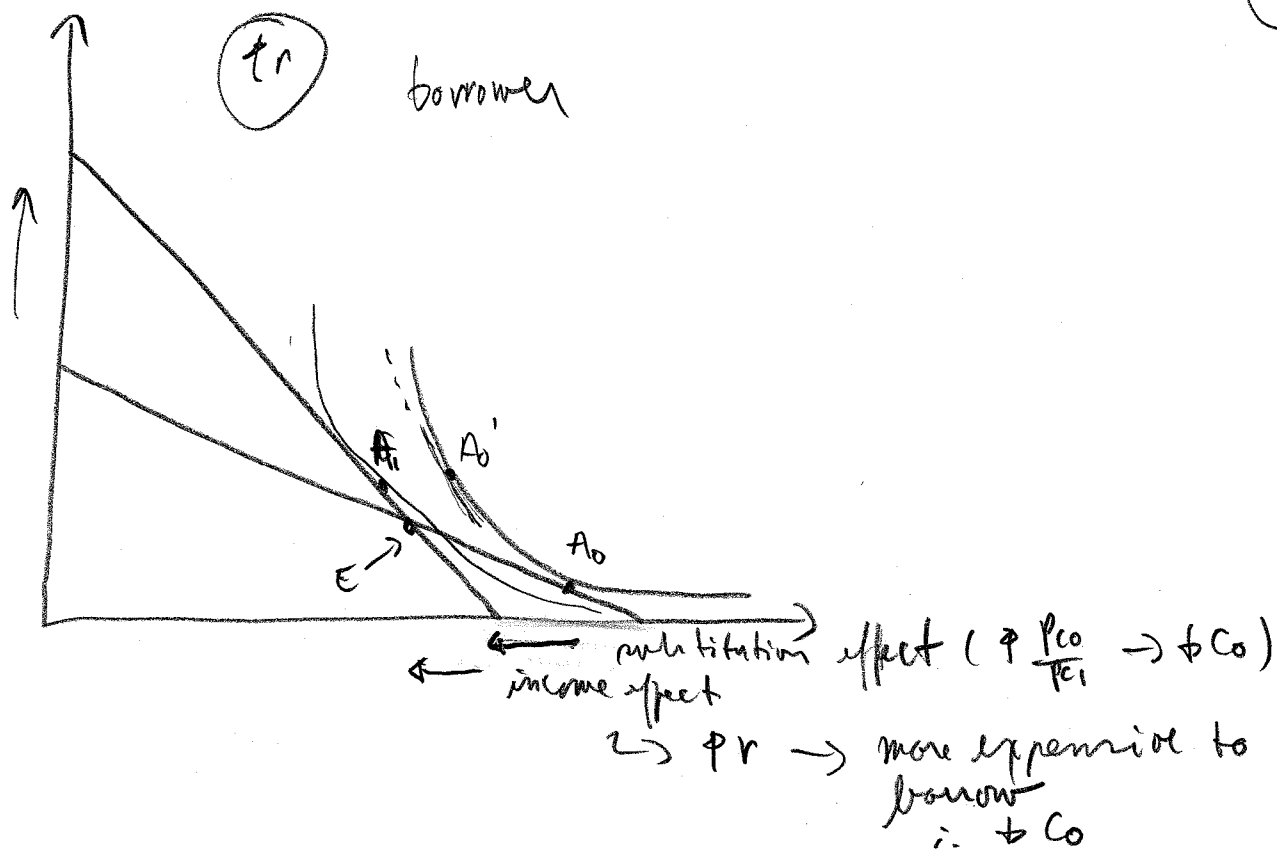 ↑r
borrower
A₁
A₀'
A₀
E
substitution effect ( ↑ Pc₀/Pc₁ → ↓ C₀ )
income effect
↳ ↑ r → more expensive to
borrow
∴ ↓ C₀